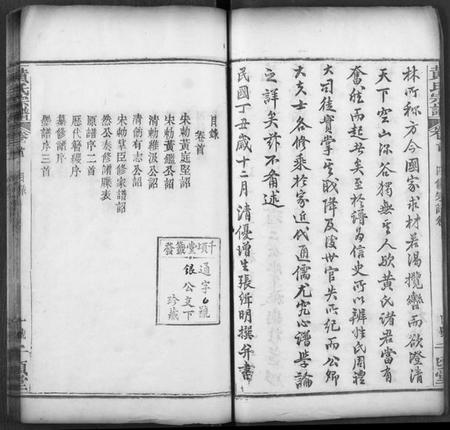 林所称方今國家求材若渴攬轡而欲澄清
天下空山𣲖谷獨無其人歟黄氏諸君當有
奮然而起者矣至於譜為信史所以辨姓氏周禮
大司徒實掌 賊降及後世官失所紀而公卿
大夫士各修乗於家近代通儒尤究心譜學論
之詳矣茲不備述
民國丁丑歲十二月清優增生張 明撰并書
黄氏宗譜
卷首
目錄
卷首
宋勅黄庭堅詔
宋勅黄 公詔
清勅維汲公詔
清勅有志公詔
宋勅羣臣修家譜詔
然公奏修譜牒表
原譜序二首
歷代簪纓序
纂修譜序
纍修譜序三首
千頃堂籤發
通字6號
銀公文下
珍藏
黄氏宗譜
卷首
目錄